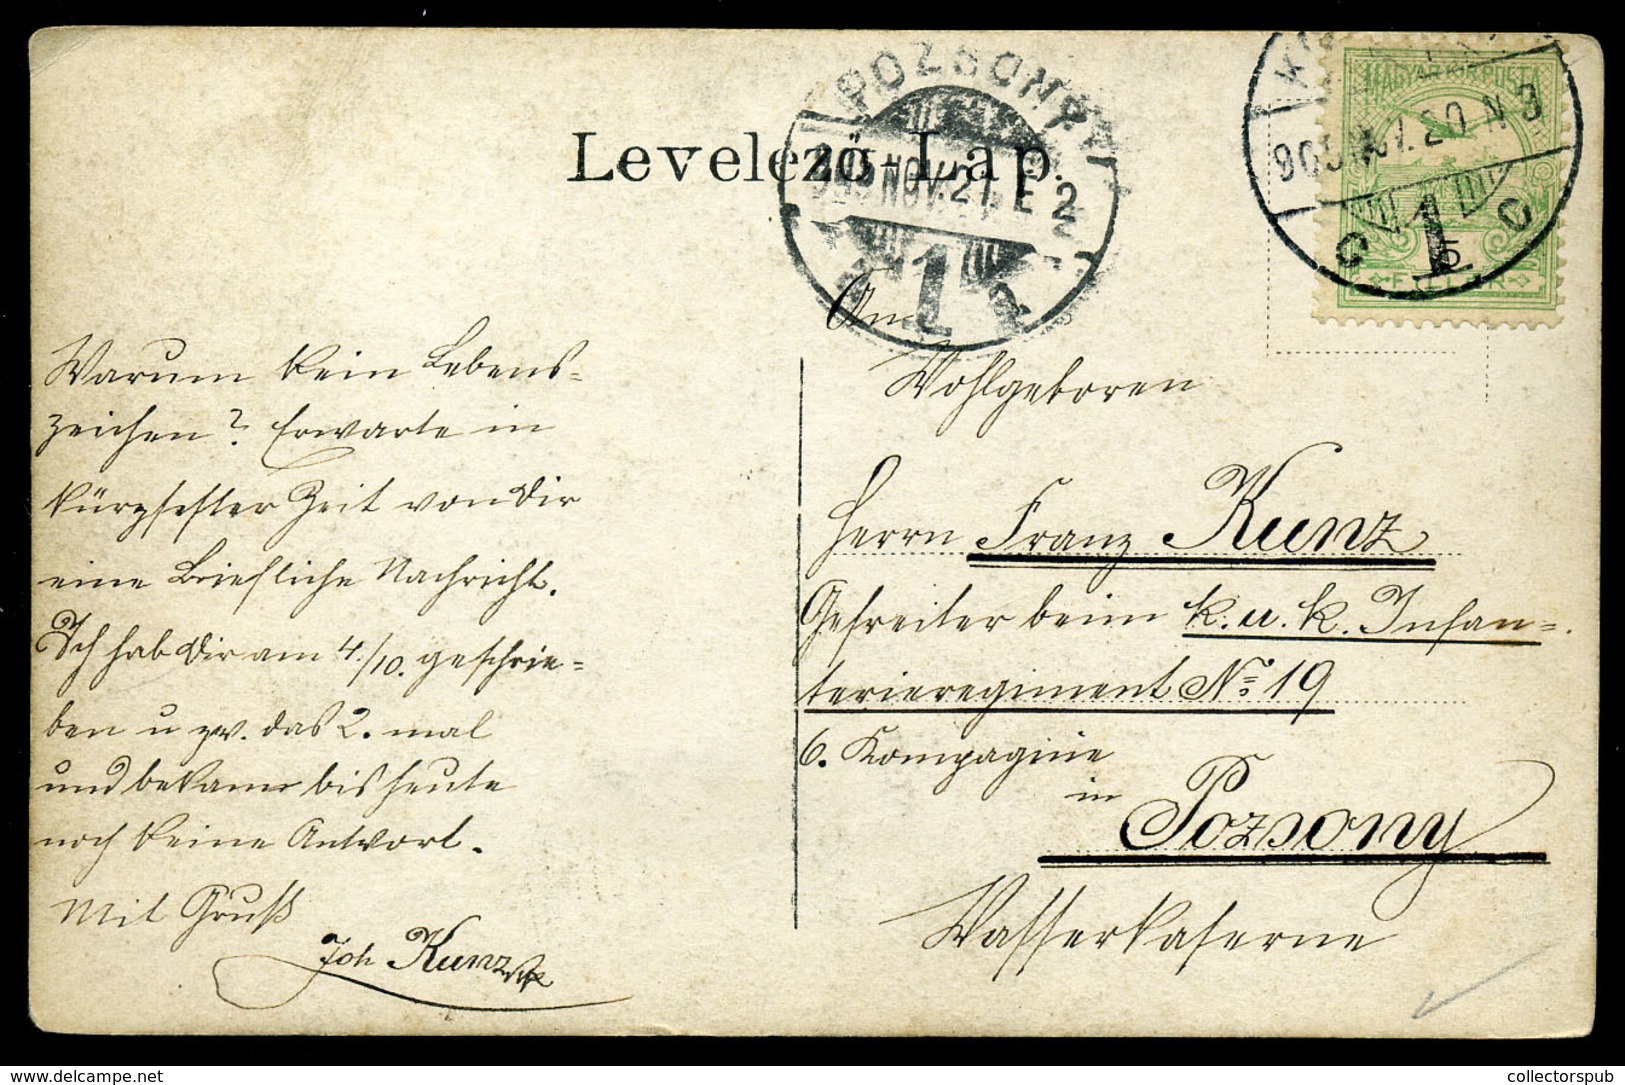 Levelező-Lap.
POZSONY
905 NOV. 21 E 2
1
905 NOV. 20 N 3
1
MAGYAR KIR. POSTA
5
Warum kein Lebens-
zeichen? Erwarte in
kürzester Zeit von Dir
eine briefliche Nachricht.
Ich hab Dir am 4./10. geschrie-
ben u zw. das 2. mal
und bekam bis heute
noch keine Antwort.
Mit Gruß
Joh Kunz
An
Wohlgeboren
Herrn Franz Kunz
Gefreiter beim k. u. k. Infan-
terieregiment No 19
6. Kompagnie
in
Pozsony
Wasserkaserne
collectorspub